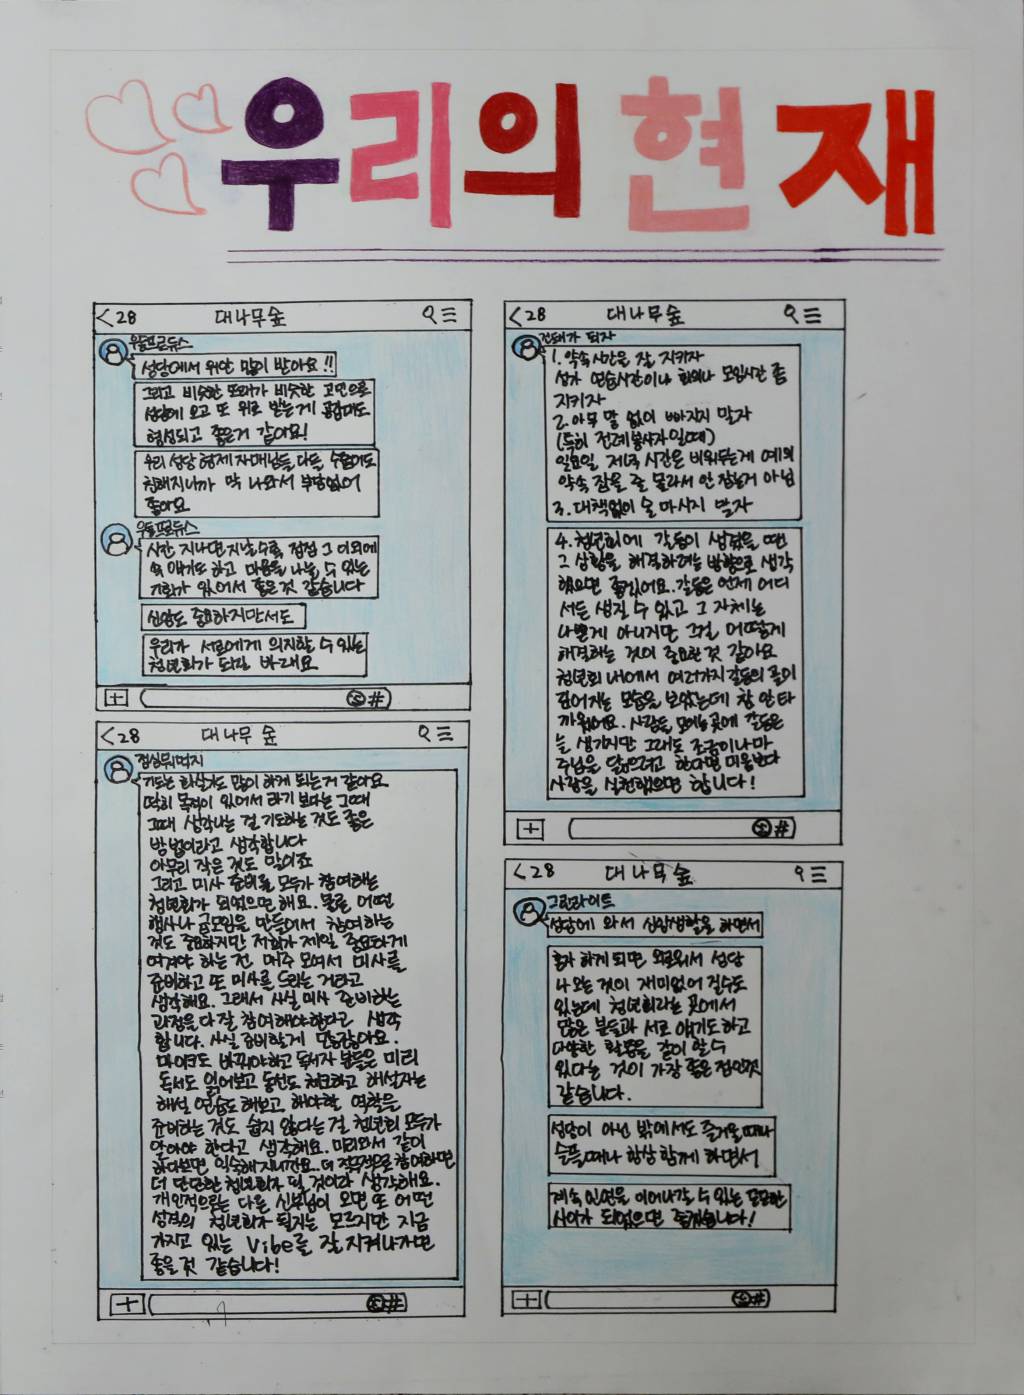 우리의 현재
< 28 대나무숲
우동프로듀스
성당에서 위안 많이 받아요 !!
그리고 비슷한 또래가 비슷한 고민으로
성당에 오고 또 위로 받는게 공감대도
형성되고 좋은거 같아요!
우리 성당 형제 자매님들 다들 수월하도
친해지니까 막 나와서 부담없어
좋아요
우동프로듀스
시간 지나면 지날수록 점점 그 이외에
속 얘기도 하고 마음을 나눌 수 있는
기회가 있어서 좋은 것 같습니다
신앙도 중요하지만서도
우리가 서로에게 의지할 수 있는
청년회가 되길 바래요
#
< 28 대나무숲
점심뭐먹지
기도는 화살기도 많이 하게 되는거 같아요
딱히 목적이 있어서 하기 보다는 그때
그때 생각나는 걸 기도하는 것도 좋은
방법이라고 생각합니다
아무리 작은 것도 말이죠
그리고 미사 준비를 모두가 참여하는
청년회가 되었으면 해요. 물론 어떤
행사나 소모임을 만들어서 참여하는
것도 중요하지만 저희가 제일 중요하게
여겨야 하는 건 매주 모여서 미사를
준비하고 또 미사를 드리는 거라고
생각해요. 그래서 사실 미사 준비하는
과정을 다 잘 참여해야한다고 생각
합니다. 사실 준비할게 많잖아요.
마이크도 바꿔야하고 독서자 분들은 미리
독서도 읽어보고 동선도 체크하고 해설자는
해설 연습도 해보고 해야할 역할을
준비하는 것도 쉽지 않다는 걸 청년회 모두가
알아야 한다고 생각해요. 미리와서 같이
하다보면 익숙해지니깐요.. 더 적극적으로 참여하면
더 단단한 청년회가 될 것이라 생각해요.
개인적으로는 다른 신부님이 오면 또 어떤
성격의 청년회가 될지는 모르지만 지금
가지고 있는 Vibe를 잘 지켜나가면
좋을 것 같습니다!
#
< 28 대나무숲
건태가 되자
1. 약속시간을 잘 지키자
성가 연습시간이나 회의나 모임시간 좀
지키자
2. 아무 말 없이 빠지지 말자
(특히 전례봉사자일때)
일요일 저녁 시간은 비워두는게 예의
약속 잡을 줄 몰라서 안 잡는거 아님
3. 대책없이 술 마시지 말자
4. 청년회에 갈등이 생겼을 땐
그 상황을 해결하려는 방향으로 생각
했으면 좋겠어요. 갈등은 언제 어디
서든 생길 수 있고 그 자체는
나쁜게 아니지만 그걸 어떻게
해결하는 것이 중요한 것 같아요
청년회 내에서 여러가지 갈등의 골이
깊어지는 모습을 보았는데 참 안타
까웠어요. 사람들 모이는 곳에 갈등은
늘 생기지만 그래도 조금이나마
주님을 닮으려고 한다면 미움보다
사랑을 실천했으면 합니다!
#
< 28 대나무숲
그린라이트
성당에 와서 신앙생활을 하면서
혼자 하게 되면 외로워서 성당
나오는 것이 재미없어 질수도
있는데 청년회라는 곳에서
많은 분들과 서로 얘기도 하고
다양한 활동을 같이 할 수
있다는 것이 가장 좋은 점인것
같습니다.
성당이 아닌 밖에서도 즐거울 때나
슬플때나 항상 함께 하면서
계속 인연을 이어나갈 수 있는
사이가 되었으면 좋겠습니다!
#